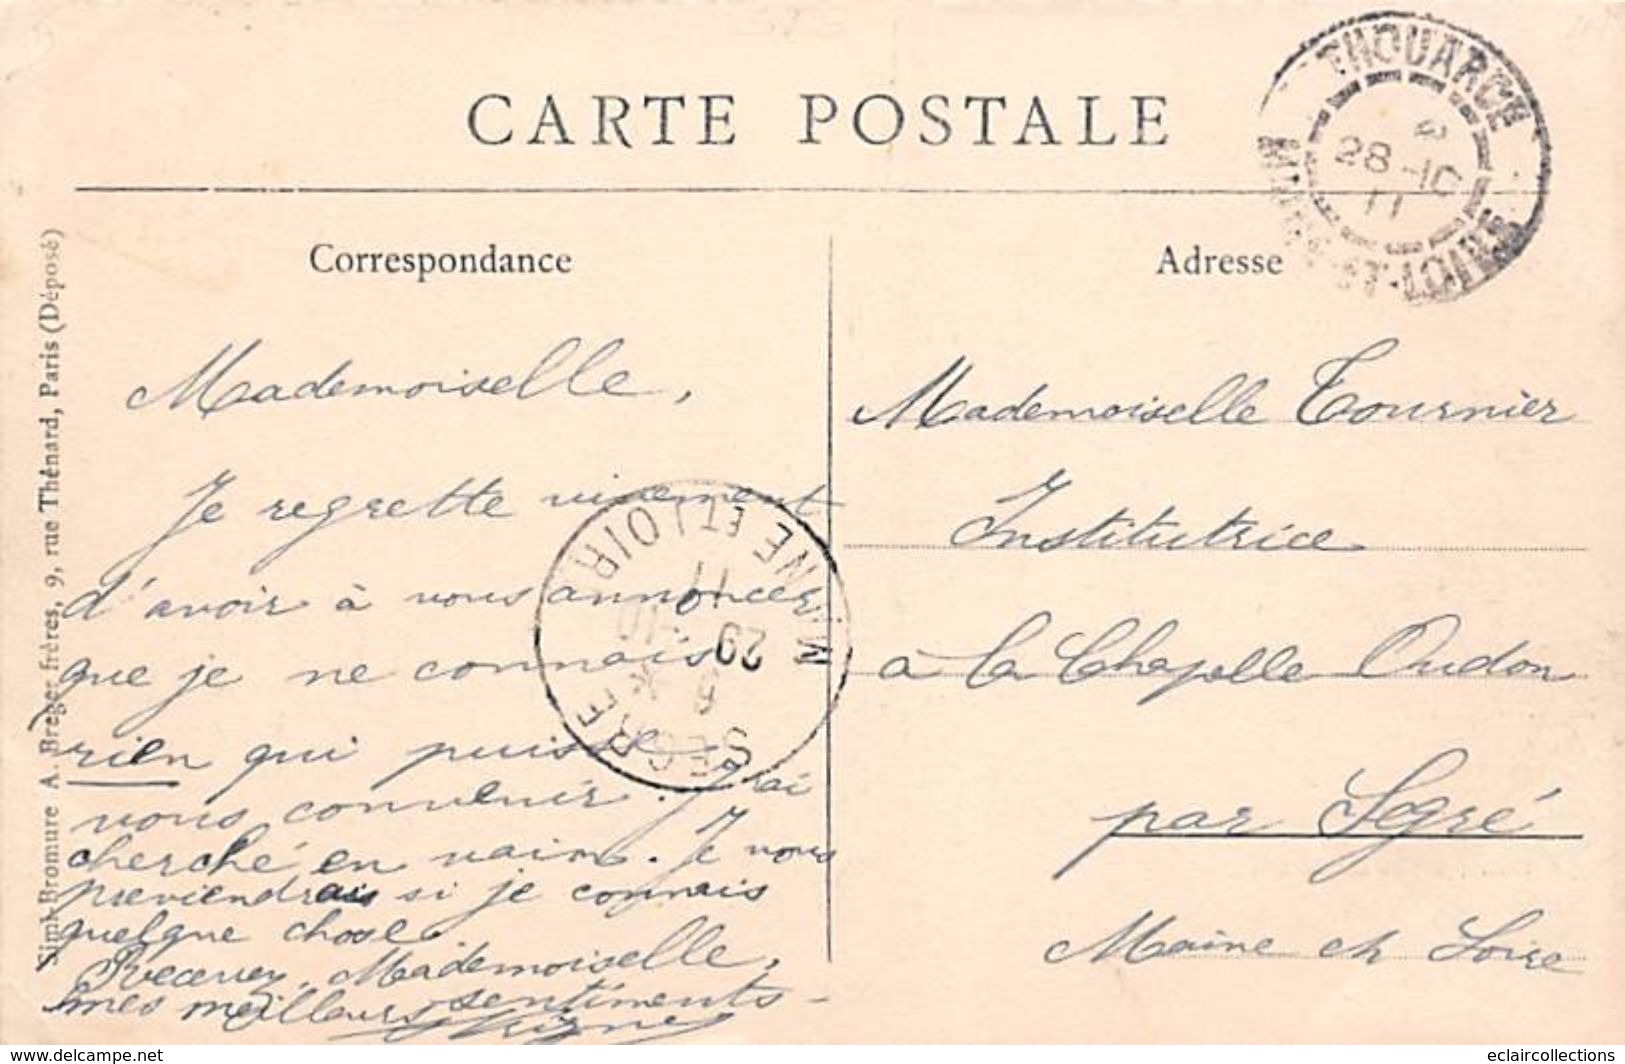 CARTE POSTALE
THOUARCÉ
28 -10
11
MAINE-ET-LOIRE
Correspondance
Adresse
Simili-Bromure A. Breger frères, 9, rue Thénard, Paris (Déposé)
Mademoiselle,
Je regrette vivement
d'avoir à vous annoncer
que je ne connais
rien qui puisse
vous convenir. J'ai
cherché en vain. Je vous
previendrais si je connais
quelque chose.
Recevez, Mademoiselle,
mes meilleurs sentiments
SEGRE
29 -10
11
MAINE ET LOIRE
Mademoiselle Tournier
Institutrice
à la Chapelle Oudon
par Segré
Maine et Loire
www.delcampe.net
eclaircollections